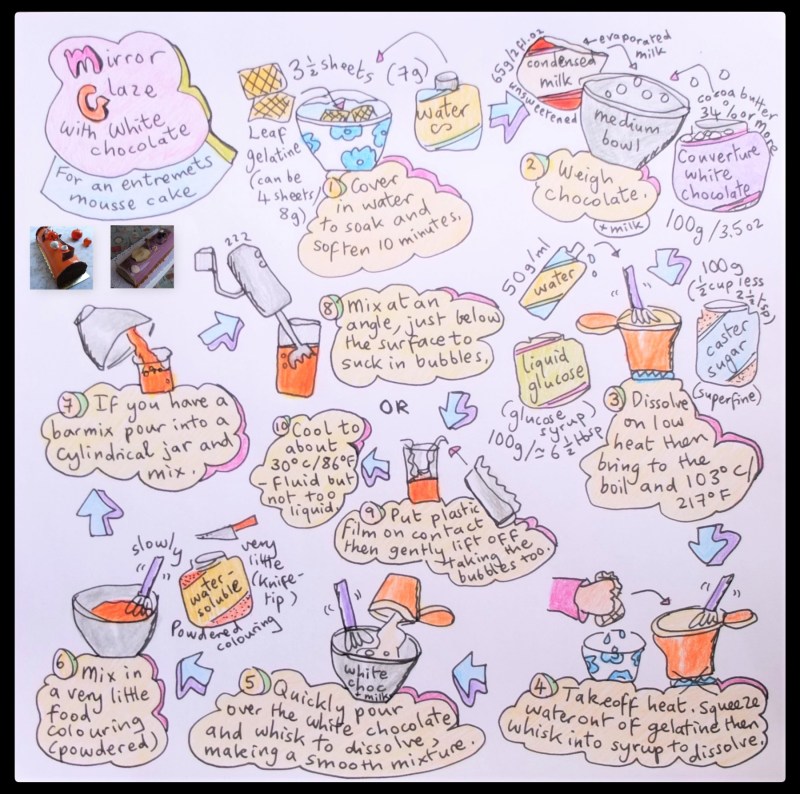 Mirror
Glaze
with white
chocolate
For an entremets
mousse cake
3 1/2 sheets (7g)
Leaf
gelatine
(can be
4 sheets/
8g)
water
① Cover
in water
to soak and
soften 10 minutes.
65g/2fl.oz
evaporated
milk
condensed
milk
unsweetened
medium
bowl
cocoa butter
34% or more
Couverture
white
chocolate
100g/3.5oz
② Weigh
chocolate.
+ milk
50g/ml
water
liquid
glucose
(glucose
syrup)
100g/≈ 6 1/2 tbsp
100g
(1/2 cup less
caster
sugar
(superfine)
③ Dissolve
on low
heat then
bring to the
boil and 103°C/
217°F
④ Take off heat. Squeeze
water out of gelatine then
whisk into syrup to dissolve.
white
choc
+ milk
⑤ Quickly pour
over the white chocolate
and whisk to dissolve,
making a smooth mixture.
slowly
very
little
(knife-
tip)
water-
soluble
Powdered
colouring
⑥ Mix in
a very little
food
colouring
(powdered)
⑦ If you have a
barmix pour into a
cylindrical jar and
mix.
zzz
⑧ Mix at an
angle, just below
the surface to
suck in bubbles.
OR
⑨ Put plastic
film on contact
then gently lift off
taking the
bubbles too.
⑩ Cool to
about
30°C/86°F
- fluid but
not too
liquid.